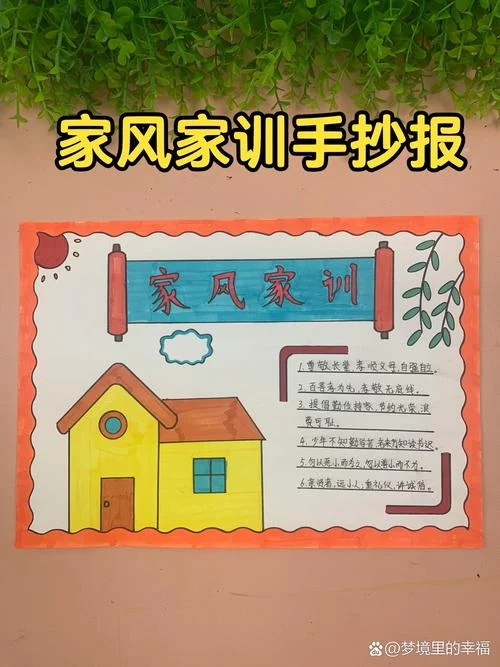 家风家训手抄报
家风家训
1.尊敬长辈,孝顺父母,自强自立。
2.百善孝为先,孝敬无底线。
3.提倡勤俭持家,节约光荣,浪
费可耻。
4.少年不知勤学苦,老来方知读书迟。
5.勿以恶小而为之,勿以善小而不为。
6.亲贤者,远小人;重礼仪,讲诚信。
@梦境里的幸福